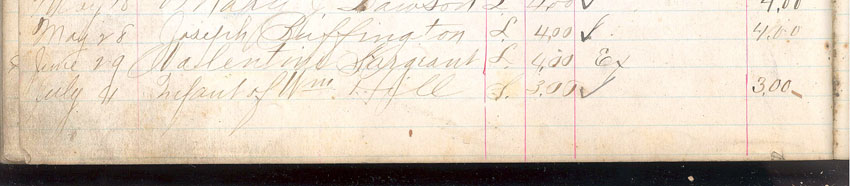 Dawson 4,00 ✓ 4,00
May 28 Joseph Buffington S. 4,00 ✓ 4,00
June 29 Vallentine Sargeant S. 4,00 Ex
July 4 Infant of Wm. Hill S. 3,00 ✓ 3,00